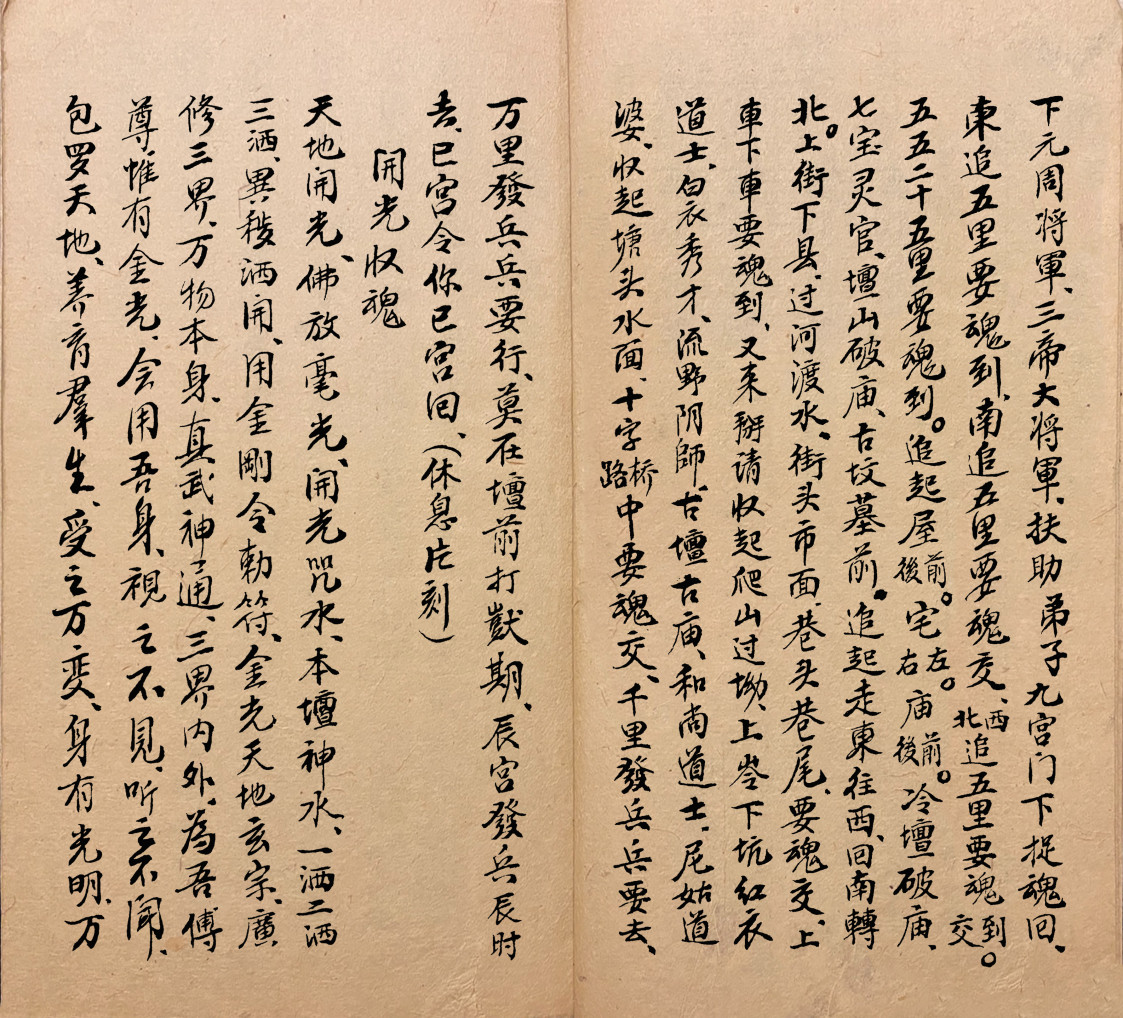 下元周将軍、三帝大将軍、扶助弟子九宫门下捉魂回、
東追五里要魂到、南追五里要魂交、西北追五里要魂到交。
五五二十五里要魂到。追起屋前後。宅左右。庙前後。冷壇破庙、
七宝灵官、壇山破庙、古坟墓前。追起走東往西、回南轉
北。上街下县、过河渡水、街头市面、巷头巷尾、要魂交、上
車下車要魂到、又来掰清收起爬山过坳、上岺下坑红衣
道士、白衣秀才、流野阴師、古壇古庙、和尚道士、尼姑道
婆、收起塘头水面、十字桥路中要魂交、千里發兵兵要去、
万里發兵兵要行、莫在壇前打獃期、辰宫發兵辰时
去、巳宫令你巳宫回、（休息片刻）
開光收魂
天地開光、佛放毫光、開光咒水、本壇神水、一洒二洒
三洒、異穢洒開、用金剛令勅符、金光天地玄宗、廣
修三界、万物本身、真武神通、三界内外、為吾傅
尊惟有金光、会用吾身、視之不見、听之不聞、
包罗天地、养育羣生、受之万变、身有光明、万